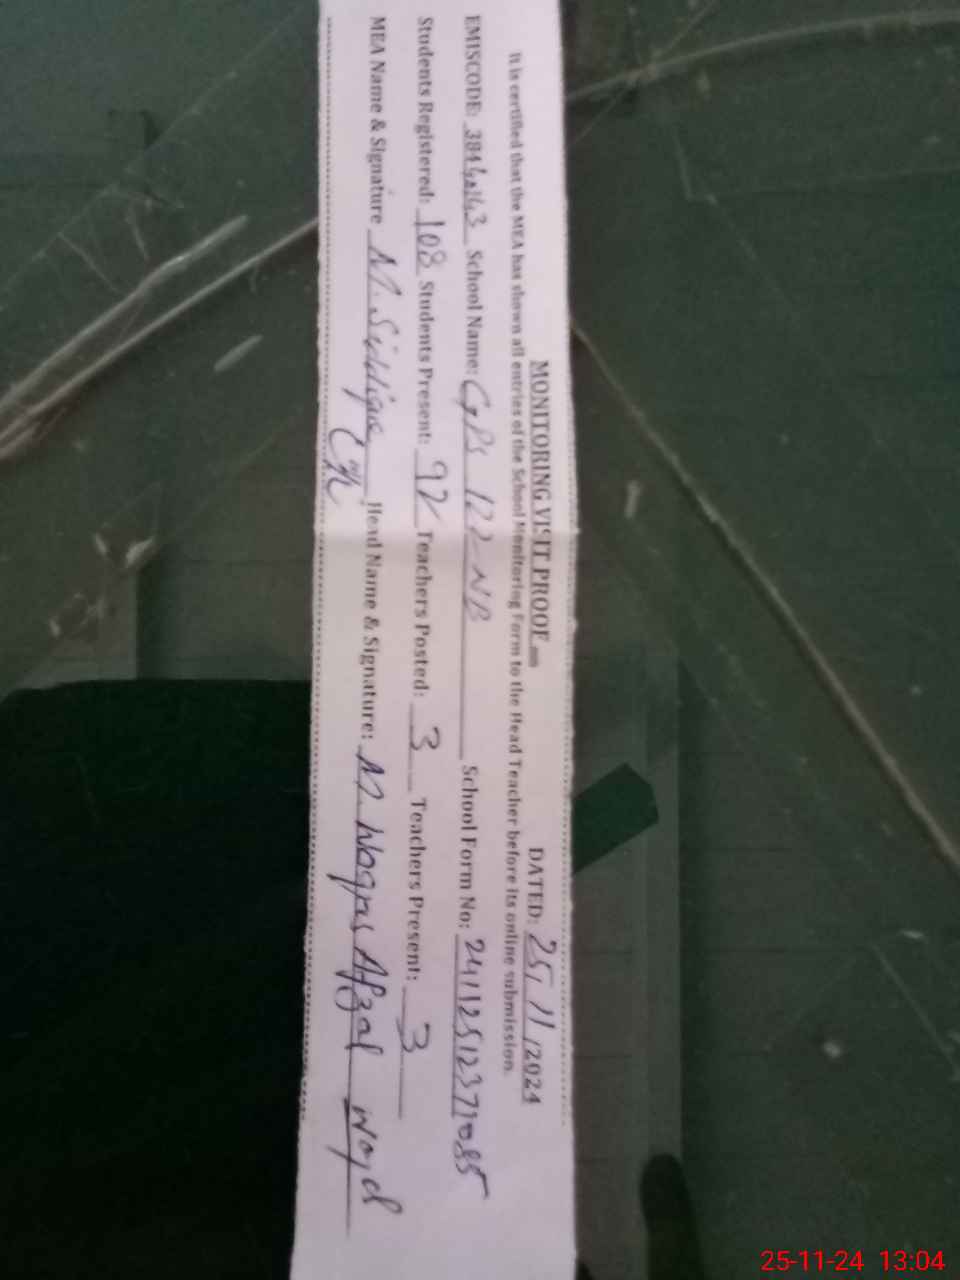 MONITORING VISIT PROOF DATED: 25/11/2024
It is certified that the MEA has shown all entries of the School Monitoring Form to the Head Teacher before its online submission.
EMISCODE: School Name: GPS 122-NB School Form No: 241125123771085
Students Registered: 108 Students Present: 92 Teachers Posted: 3 Teachers Present: 3
MEA Name & Signature M. Siddique Head Name & Signature: M. Waqas Afzal
25-11-24 13:04